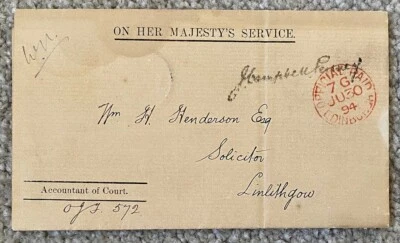 ON HER MAJESTY'S SERVICE.
J Campbell Penney
OFFICIAL PAID
7 G
JU 30
94
EDINBURGH
Wm H. Henderson Esq
Solicitor
Linlithgow
Accountant of Court.
572